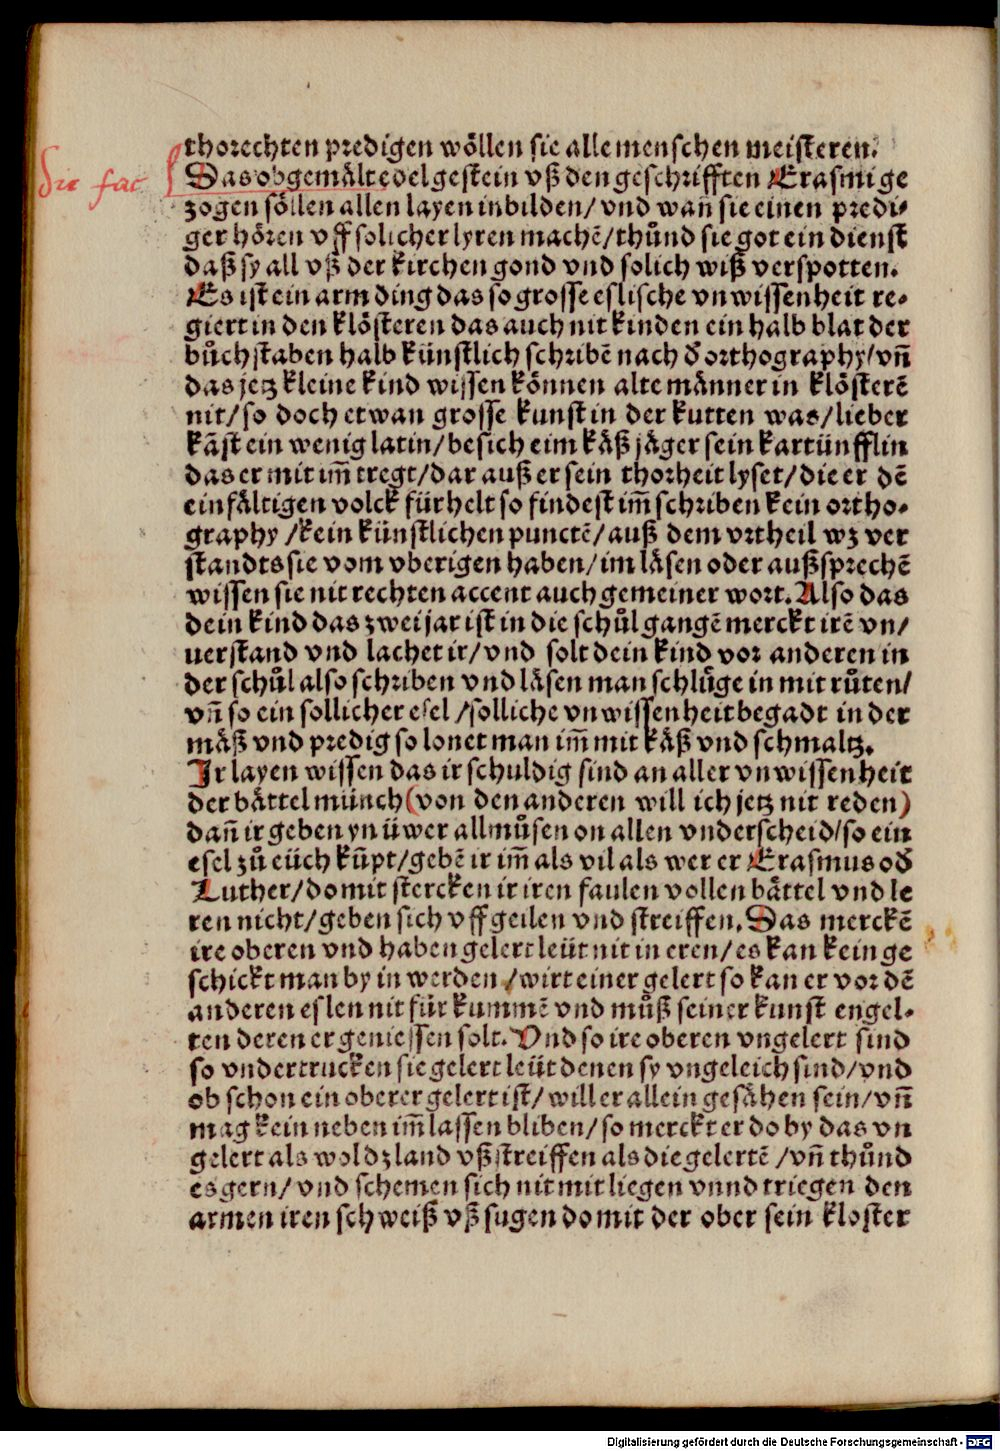 Sic fac
thorechten predigen wöllen sie alle menschen meisteren.
Das obgemält edelgestein vß den geschrifften Erasmi ge
zogen söllen allen layen inbilden/ vnd wañ sie einen predi⸗
ger hören vff solicher lyren machē/ thůnd sie got ein dienst
daß sy all vß der kirchen gond vnd solich wiß verspotten.
Es ist ein arm ding das so grosse eslische vnwissenheit re⸗
giert in den klösteren das auch nit kinden ein halb blat der
bůchstaben halb künstlich schribē nach d orthography/ vñ
das jetz kleine kind wissen können alte männer in klösterē
nit/ so doch etwan grosse kunst in der kutten was/ lieber
kāst ein wenig latin/ besich eim käß jäger sein kartünfflin
das er mit im̄ tregt/ dar auß er sein thorheit lyset/ die er dē
einfältigen volck fürhelt so findest im̄ schriben kein ortho⸗
graphy /kein künstlichen punctē/ auß dem vrtheil wz ver
standts sie vom vberigen haben/ im läsen oder außsprechē
wissen sie nit rechten accent auch gemeiner wort. Also das
dein kind das zwei jar ist in die schůl gangē merckt irē vn/
uerstand vnd lachet ir/ vnd solt dein kind vor anderen in
der schůl also schriben vnd läsen man schlůge in mit růten/
vñ so ein sollicher esel /solliche vnwissenheit begadt in der
mäß vnd predig so lonet man im̄ mit käß vnd schmaltz.
Ir layen wissen das ir schuldig sind an aller vnwissenheit
der bättel münch (von den anderen will ich jetz nit reden)
dañ ir geben yn üwer allmůsen on allen vnderscheid/ so ein
esel zů eüch kūpt/ gebē ir im̄ als vil als wer er Erasmus od
Luther/ do mit stercken ir iren faulen vollen bättel vnd le
ren nicht/ geben sich vff geilen vnd streiffen. Das merckē
ire oberen vnd haben gelert leüt nit in eren/ es kan kein ge
schickt man by in werden /wirt einer gelert so kan er vor dē
anderen eslen nit für kummē vnd můß seiner kunst engel⸗
ten deren er geniessen solt. Vnd so ire oberen vngelert sind
so vndertrucken sie gelert leüt denen sy vngeleich sind/ vnd
ob schon ein oberer gelert ist/ will er allein gesähen sein/ vñ
mag kein neben im̄ lassen bliben/ so merckt er do by das vn
gelert als wol dz land vß streiffen als die gelertē /vñ thůnd
es gern/ vnd schemen sich nit mit liegen vnnd triegen den
armen iren schweiß vß sugen do mit der ober sein kloster
Digitalisierung gefördert durch die Deutsche Forschungsgemeinschaft - DFG